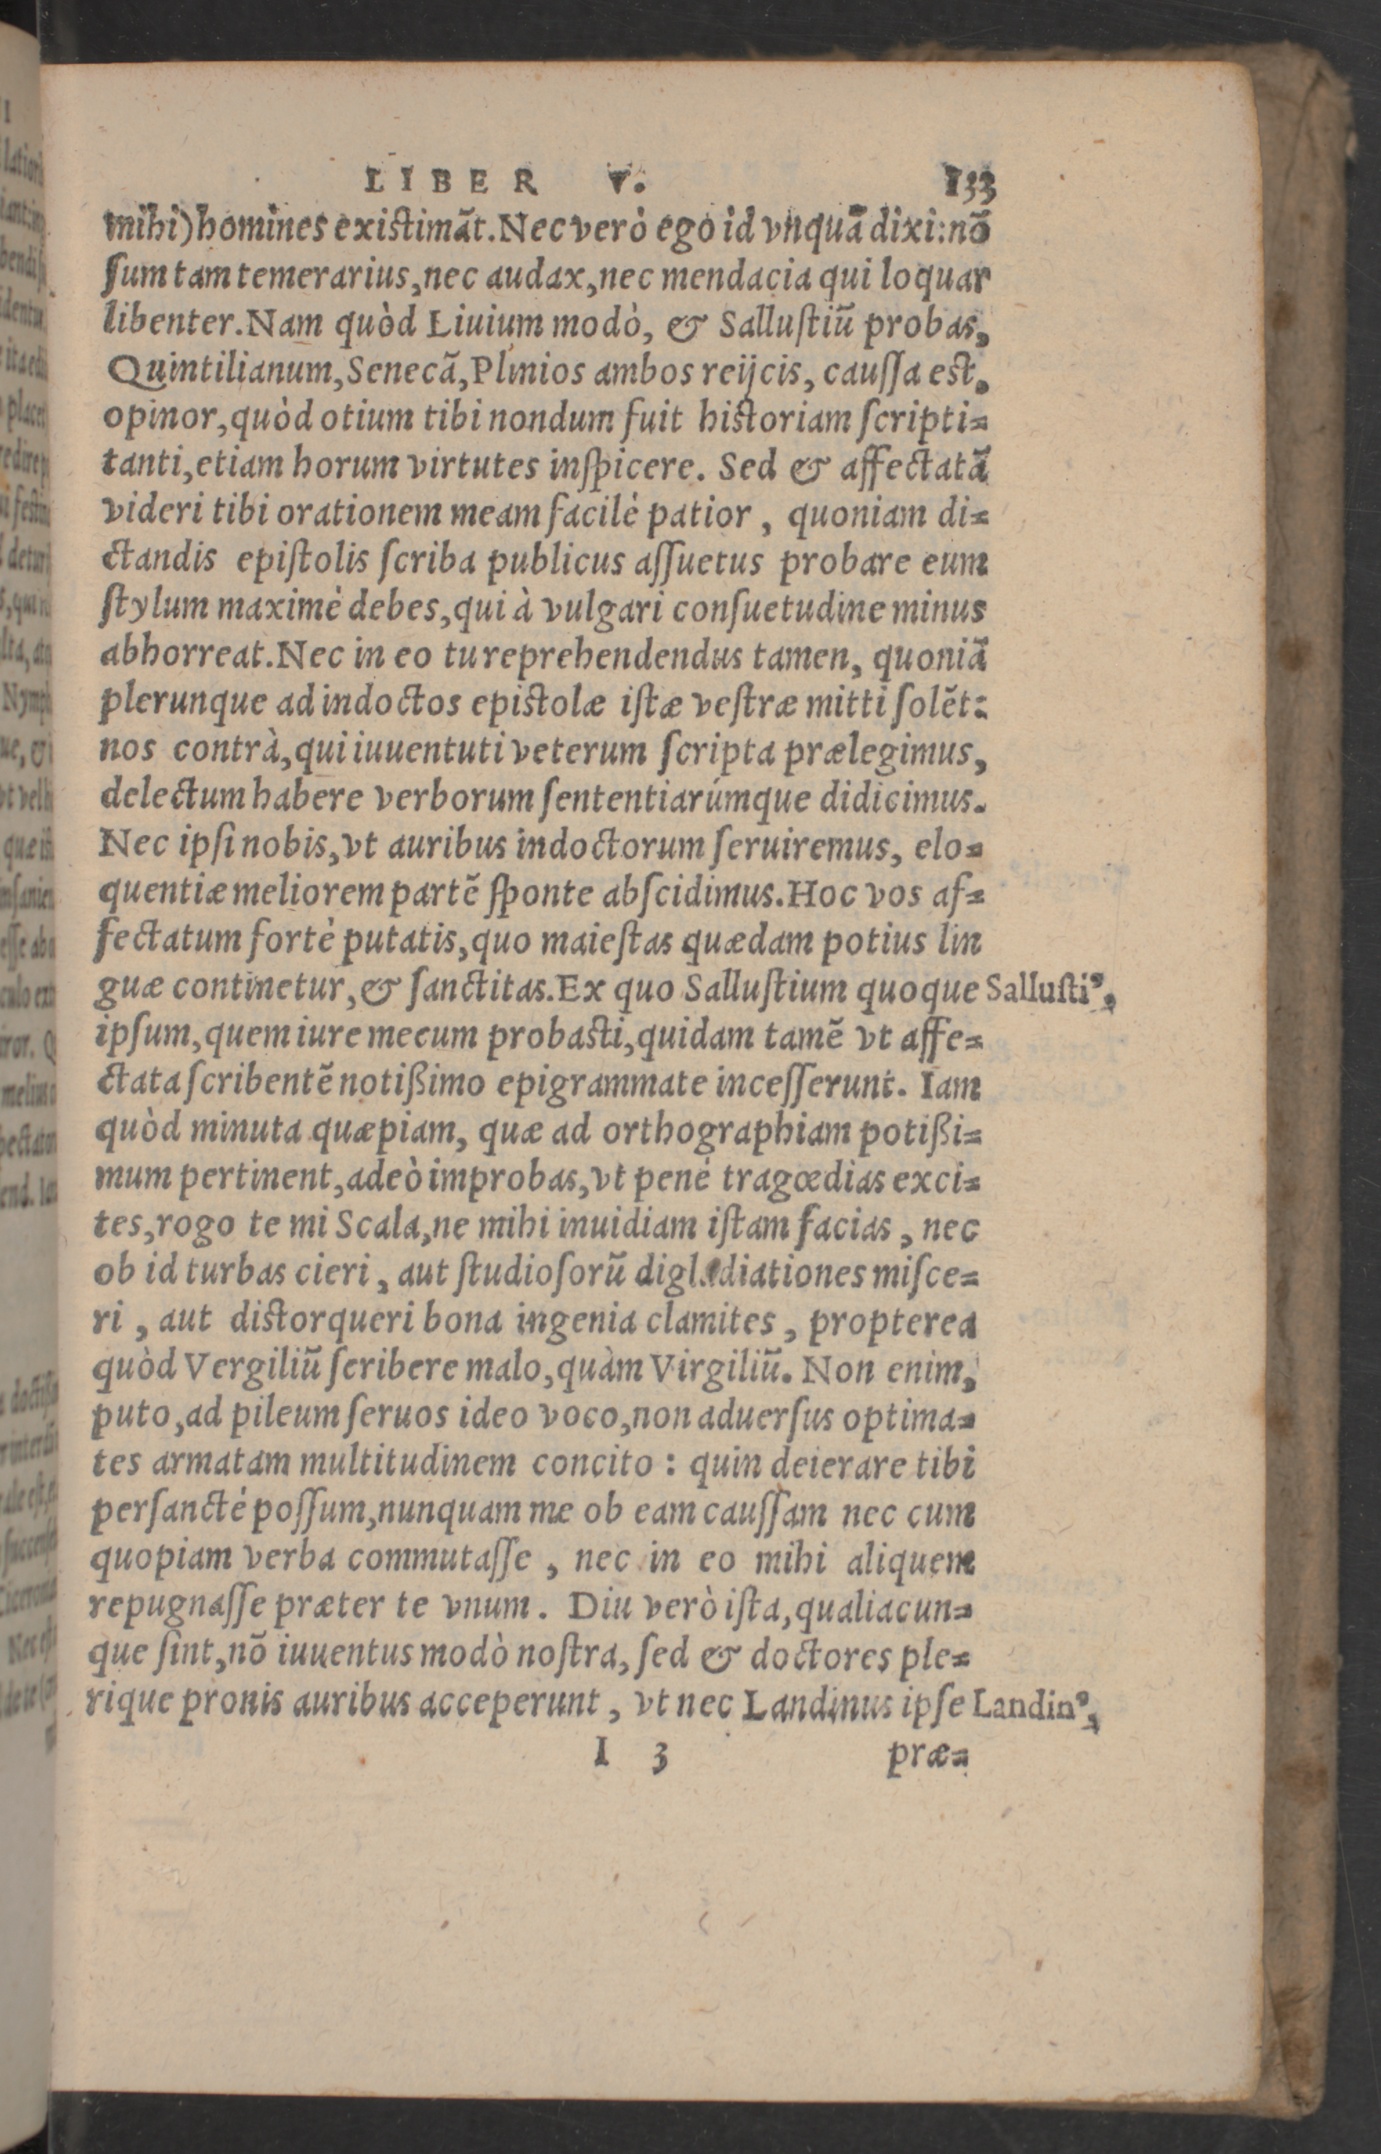 LIBER V. 133
mihi) homines existimāt. Nec verò ego id vnquā dixi: nō
ſum tam temerarius, nec audax, nec mendacia qui loquar
libenter. Nam quòd Liuium modò, & Salluſtiū probas,
Quintilianum, Senecā, Plinios ambos reijcis, cauſſa est,
opinor, quòd otium tibi nondum fuit historiam ſcripti-
tanti, etiam horum virtutes inſpicere. Sed & affectatā
videri tibi orationem meam facilè patior, quoniam di-
ctandis epiſtolis ſcriba publicus aſſuetus probare eum
ſtylum maximè debes, qui à vulgari conſuetudine minus
abhorreat. Nec in eo tu reprehendendus tamen, quoniā
plerunque ad indoctos epistolæ iſtæ veſtræ mitti ſolēt:
nos contrà, qui iuuentuti veterum ſcripta prælegimus,
delectum habere verborum ſententiarúmque didicimus.
Nec ipſi nobis, vt auribus indoctorum ſeruiremus, elo-
quentiæ meliorem partē ſponte abſcidimus. Hoc vos af-
fectatum fortè putatis, quo maieſtas quædam potius lin
guæ continetur, & ſanctitas. Ex quo Salluſtium quoque Salluſti⁹,
ipſum, quem iure mecum probasti, quidam tamē vt affe-
ctata ſcribentē notißimo epigrammate inceſſerunt. Iam
quòd minuta quæpiam, quæ ad orthographiam potißi-
mum pertinent, adeò improbas, vt penè tragœdias exci-
tes, rogo te mi Scala, ne mihi inuidiam iſtam facias, nec
ob id turbas cieri, aut ſtudioſorū digladiationes miſce-
ri, aut distorqueri bona ingenia clamites, propterea
quòd Vergiliū ſcribere malo, quàm Virgiliū. Non enim,
puto, ad pileum ſeruos ideo voco, non aduerſus optima-
tes armatam multitudinem concito: quin deierare tibi
perſanctè poſſum, nunquam me ob eam cauſſam nec cum
quopiam verba commutaſſe, nec in eo mihi aliquem
repugnaſſe præter te vnum. Diu verò iſta, qualiacun-
que ſint, nō iuuentus modò noſtra, ſed & doctores ple-
rique pronis auribus acceperunt, vt nec Landinus ipſe Landin⁹,
I 3 præ-